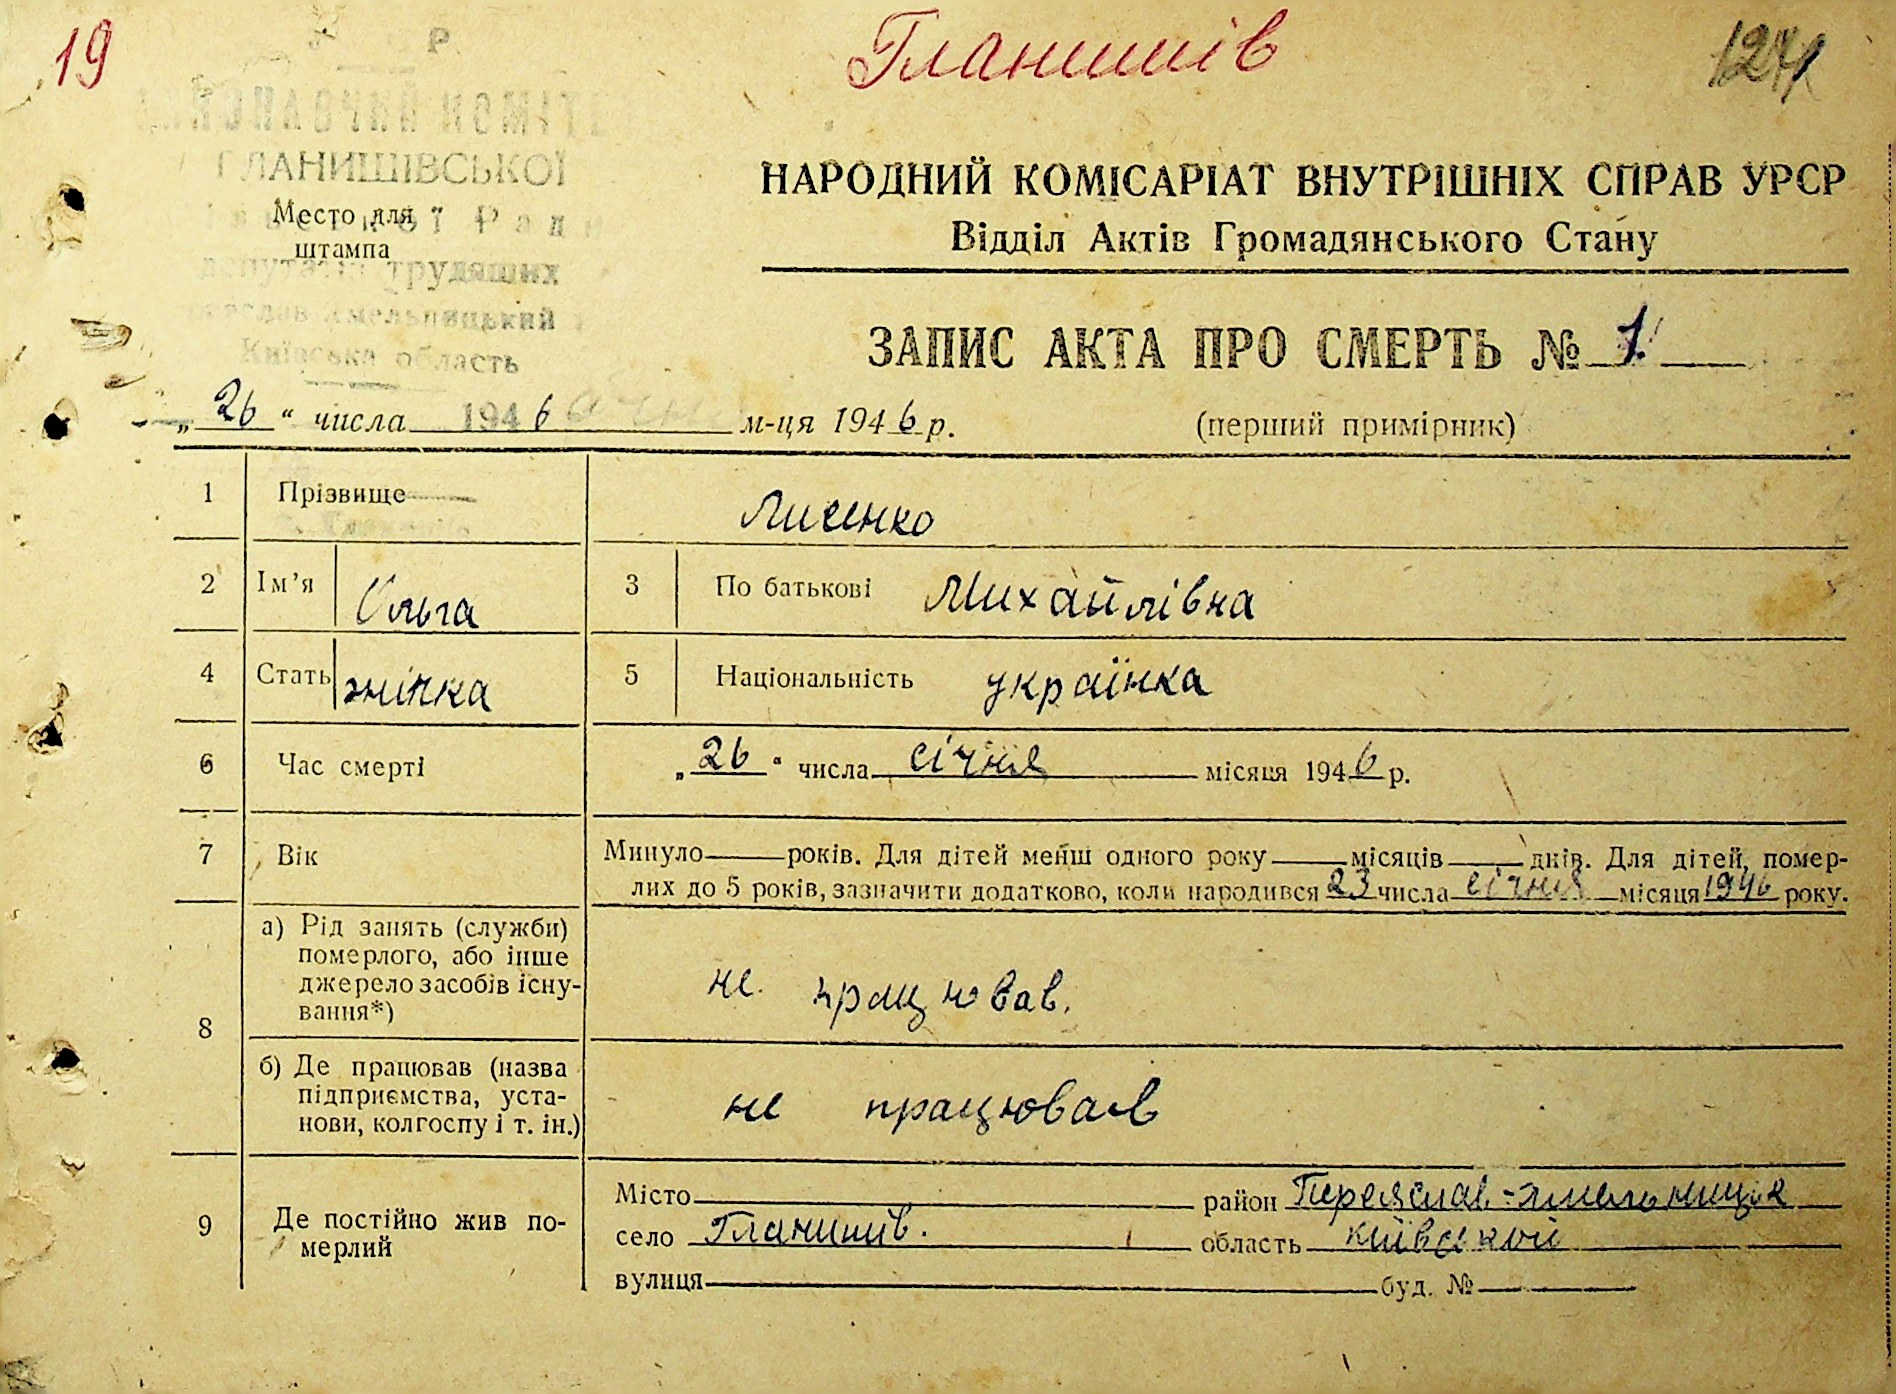 19 Гланишів
Р
ВИКОНАВЧИЙ КОМІТЕТ
ГЛАНИШІВСЬКОЇ
Место для
штампа
Ради
депутатів трудящих
Хмельницький
Київська область
НАРОДНИЙ КОМІСАРІАТ ВНУТРІШНІХ СПРАВ УРСР
Відділ Актів Громадянського Стану
ЗАПИС АКТА ПРО СМЕРТЬ № 1.
„26“ числа 1946 січня м-ця 1946 р. (перший примірник)
1 Прізвище Лисенко
2 Ім’я Ольга 3 По батькові Михайлівна
4 Стать жінка 5 Національність українка
6 Час смерті „26“ числа січня місяця 1946 р.
7 Вік Минуло — років. Для дітей менш одного року — місяців — днів. Для дітей, помер-
лих до 5 років, зазначити додатково, коли народився 23 числа січня місяця 1946 року.
8 а) Рід занять (служби)
померлого, або інше
джерело засобів існу-
вання*)
не працював.
б) Де працював (назва
підприємства, уста-
нови, колгоспу і т. ін.)
не працював
9 Де постійно жив по-
мерлий
Місто район Переяслав-Хмельницьк
село Гланишів. область київської
вулиця буд. №